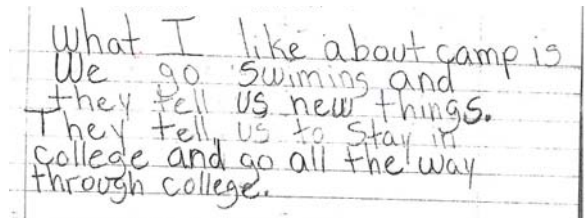 What I like about camp is
We go Swiming and
they tell us new things.
They tell us to Stay in
college and go all the way
through college.